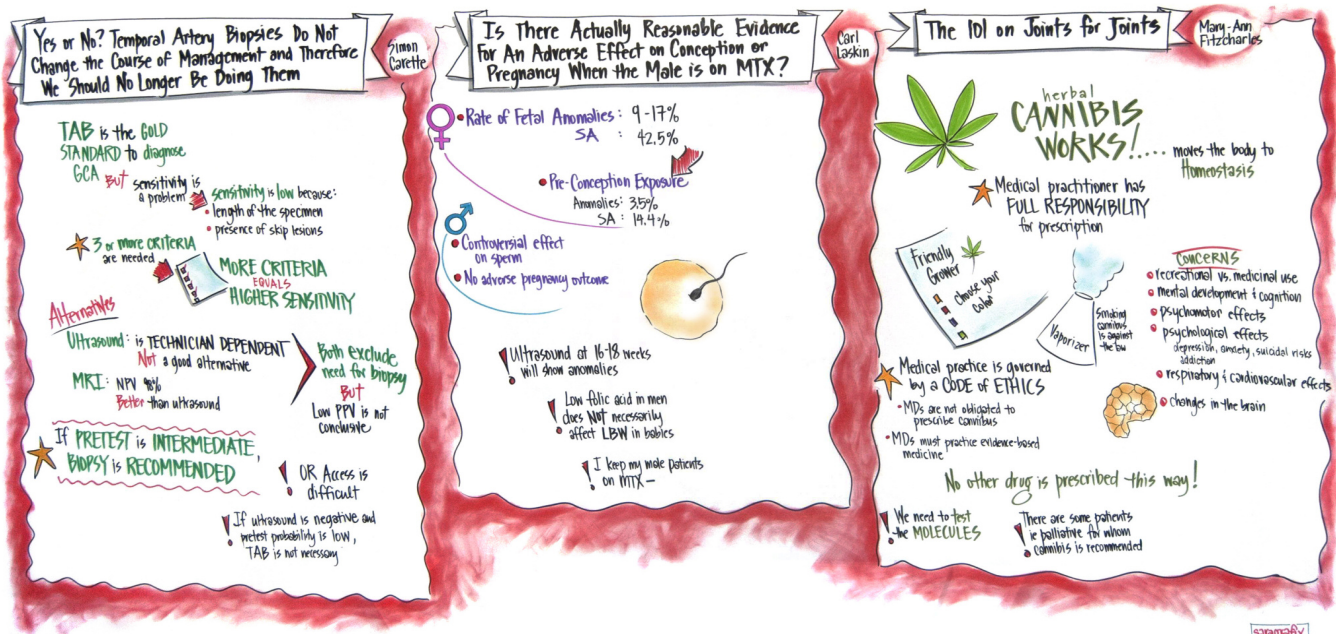 Yes or No? Temporal Artery Biopsies Do Not
Change the Course of Management and Therefore
We Should No Longer Be Doing Them
Simon
Carette
TAB is the GOLD
STANDARD to diagnose
GCA BUT sensitivity is
a problem
sensitivity is low because:
• length of the specimen
• presence of skip lesions
3 or more CRITERIA
are needed
MORE CRITERIA
EQUALS
HIGHER SENSITIVITY
Alternatives
Ultrasound: is TECHNICIAN DEPENDENT
Not a good alternative
MRI: NPV 98%
Better than ultrasound
Both exclude
need for biopsy
BUT
Low PPV is not
conclusive
If PRETEST is INTERMEDIATE,
BIOPSY is RECOMMENDED
! OR Access is
difficult
! If ultrasound is negative and
pretest probability is low,
TAB is not necessary
Is There Actually Reasonable Evidence
For An Adverse Effect on Conception or
Pregnancy When the Male is on MTX?
Carl
Laskin
• Rate of Fetal Anomalies: 9-17%
SA : 42.5%
• Pre-Conception Exposure
Anomalies: 3.5%
SA : 14.4%
• Controversial effect
on sperm
• No adverse pregnancy outcome
! Ultrasound at 16-18 weeks
will show anomalies
! Low folic acid in men
does NOT necessarily
affect LBW in babies
! I keep my male patients
on MTX—
The 101 on Joints for Joints
Mary-Ann
Fitzcharles
herbal
CANNIBIS
WORKS!.... moves the body to
Homeostasis
Medical practitioner has
FULL RESPONSIBILITY
for prescription
Friendly
Grower
Choose your
color
Vaporizer
Smoking
cannibus
is against
the law
CONCERNS
• recreational vs. medicinal use
• mental development & cognition
• psychomotor effects
• psychological effects
depression, anxiety, suicidal risks
addiction
• respiratory & cardiovascular effects
• changes in the brain
Medical practice is governed
by a CODE of ETHICS
• MDs are not obligated to
prescribe cannibus
• MDs must practice evidence-based
medicine
No other drug is prescribed this way!
! We need to test
the MOLECULES
! There are some patients
ie palliative for whom
cannibis is recommended